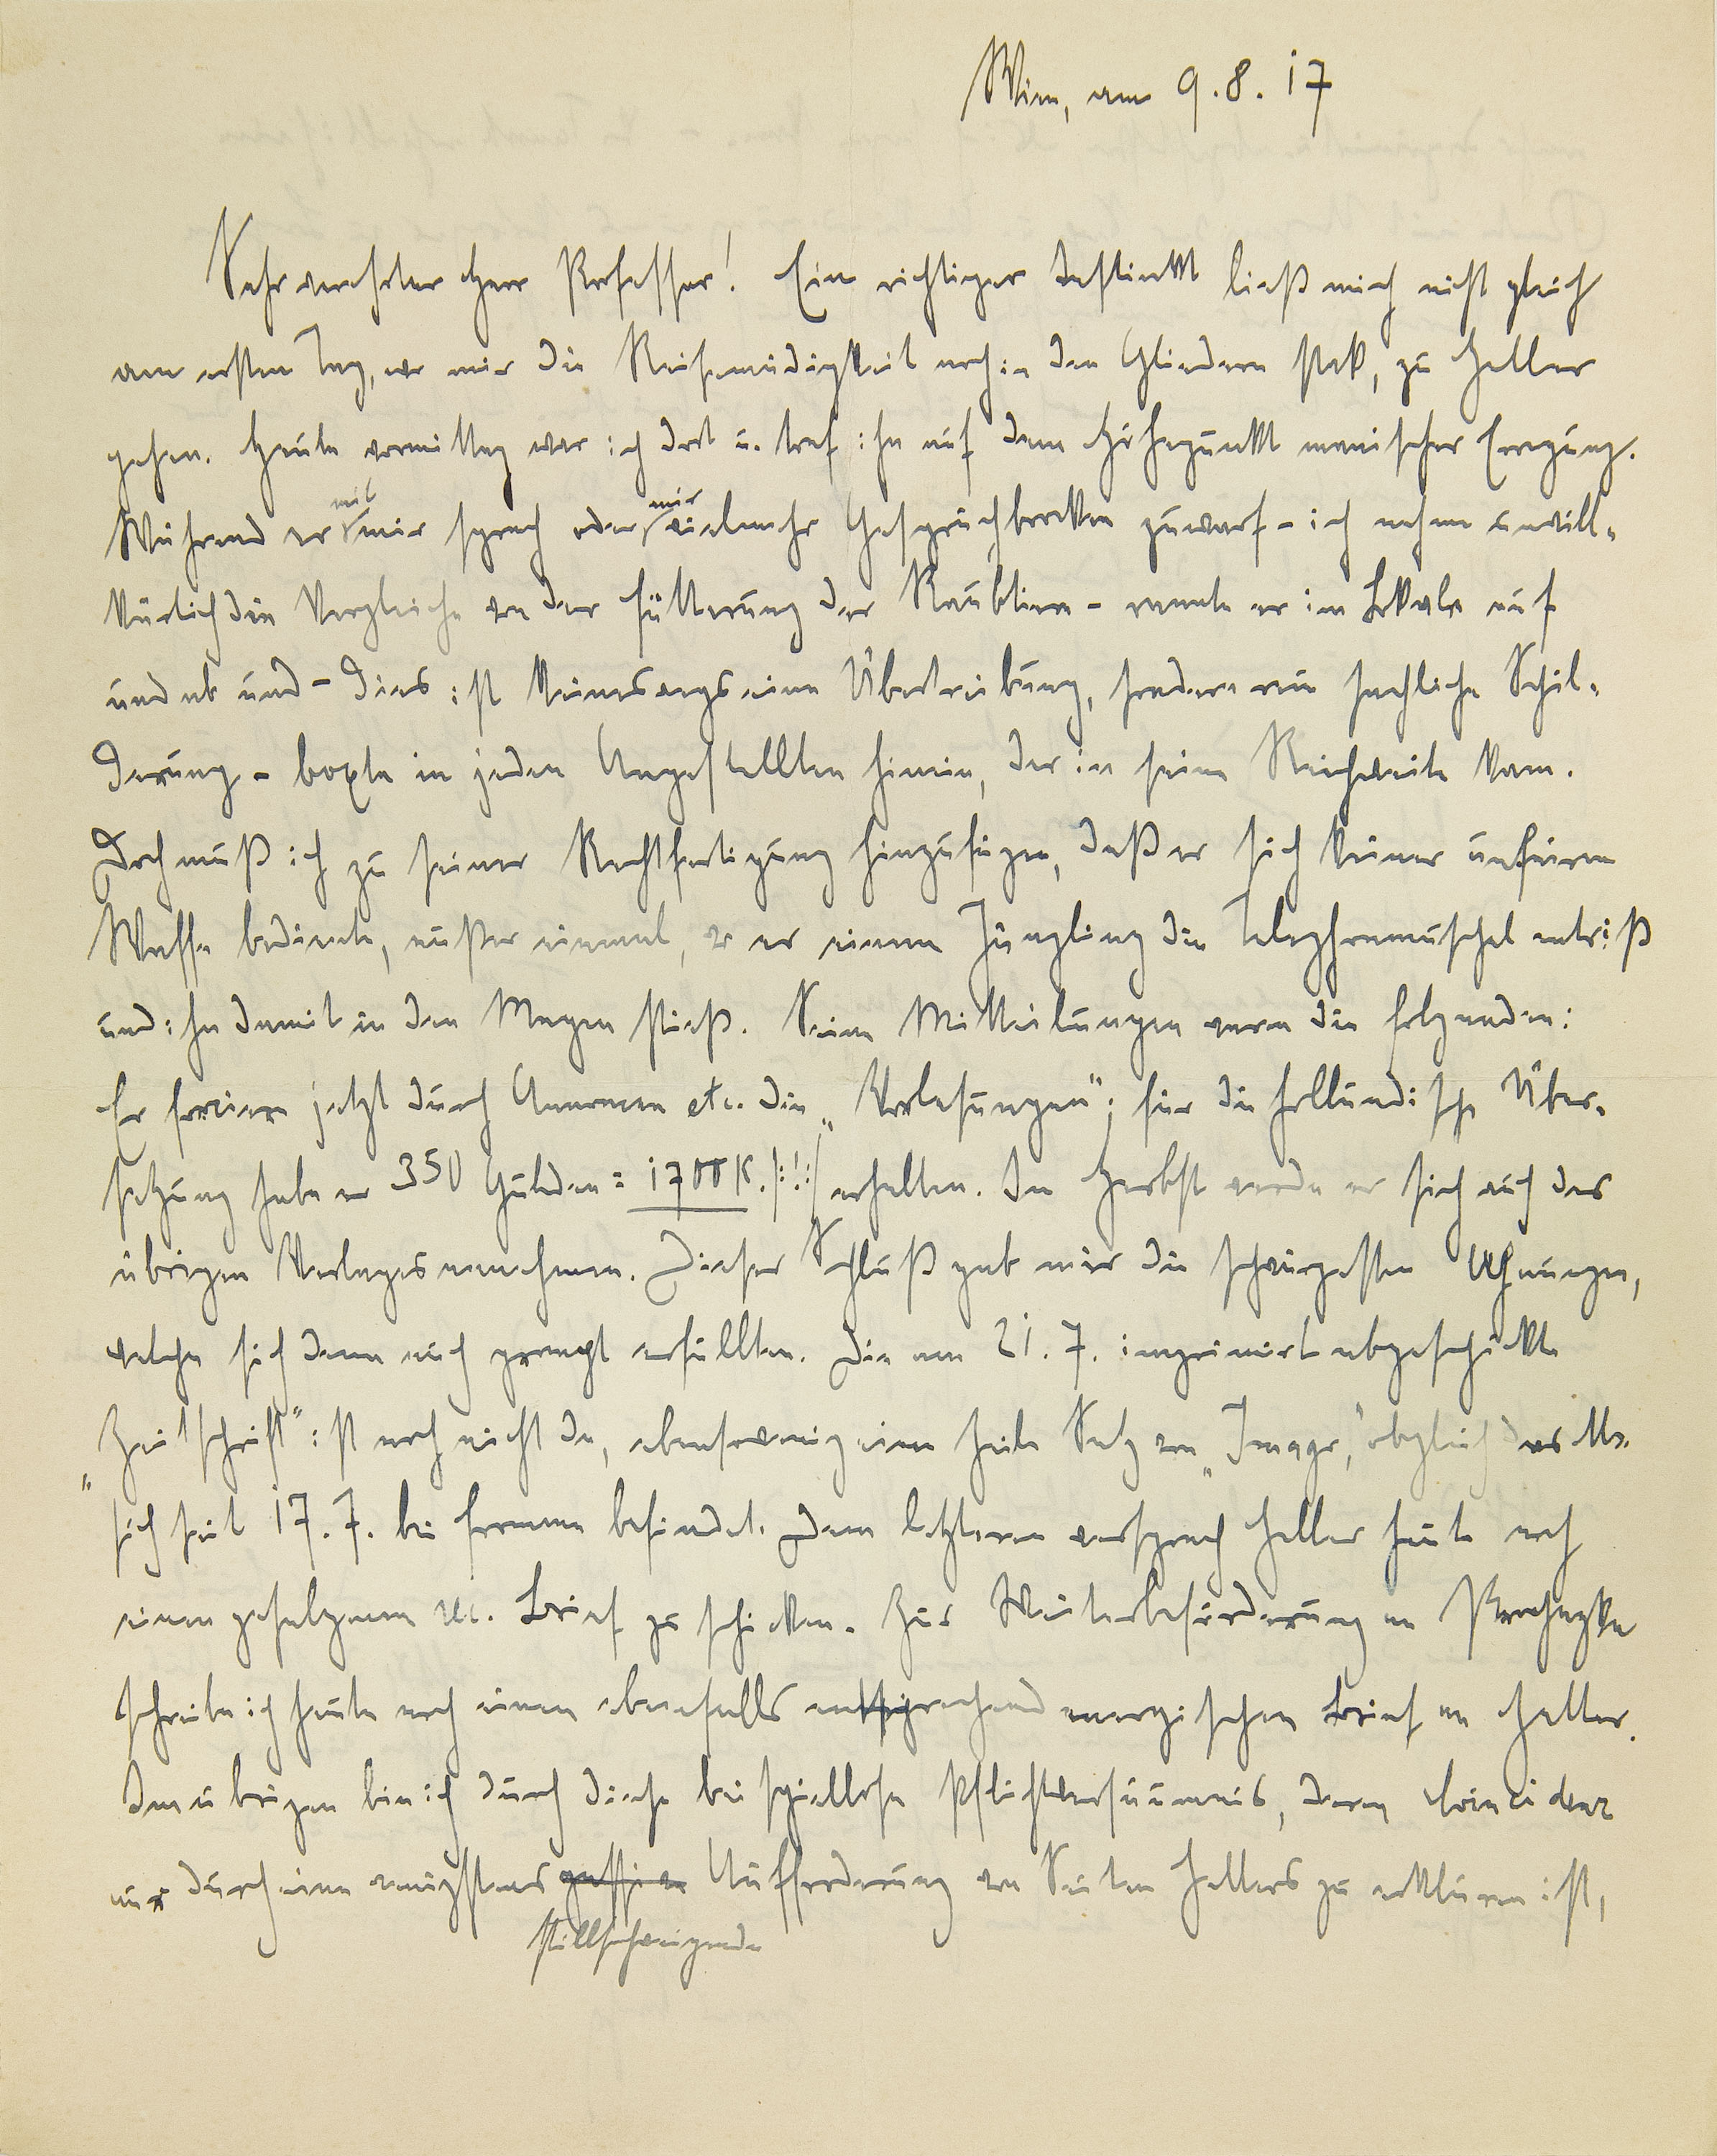 Wien, am 9.8.17
Sehr verehrter Herr Professor! Ein richtiger Instinkt ließ mich nicht gleich
am ersten Tag, wo mir die Reisemüdigkeit noch in den Gliedern stak, zu Heller
gehen. Heute vormittag war ich dort u. traf ihn auf dem Höhepunkt manischer Erregung.
Während er mit mir sprach oder mir vielmehr Gesprächbrocken zuwarf – ich nehme unwill-
kürlich die Vergleiche von der Fütterung der Raubtiere – rannte er im Lokale auf
und ab und – dies ist keineswegs eine Übertreibung, sondern rein sachliche Schil-
derung – boxte in jeden Angestellten hinein, der in seine Reichweite kam.
Doch muß ich zu seiner Rechtfertigung hinzufügen, daß er sich keiner unfairen
Waffe bediente, außer einmal, wo er einem Jüngling die Telephonmuschel entriß
und ihn damit in den Magen stieß. Seine Mitteilungen waren die folgenden:
Er forciere jetzt durch Annoncen etc. die „Vorlesungen"; für die holländische Über-
setzung habe er 350 Gulden = 1700 K. /:!:/ erhalten. Im Herbst werde er sich auch des
übrigen Verlages annehmen. Dieser Schluß gab mir die schwärzesten Ahnungen,
welche sich denn auch prompt erfüllten. Die am 21.7. imprimiert abgeschickte
„Zeitschrift" ist noch nicht da, ebensowenig eine Zeile Satz von „Imago", obgleich das Ms.
sich seit 17.7. bei Fromme befindet. Dem letzteren versprach Heller heute noch
einen gesalzenen rec. Brief zu schicken. Zur Weiterbeförderung an Prochazka
schreibe ich heute noch einen ebenfalls entsprechend energischen Brief an Heller.
Im übrigen bin ich durch diese beispiellose Pflichtversäumnis, deren
nur durch eine wenigstens passive Aufforderung von Seiten Hellers zu erklären ist,
stillschweigende